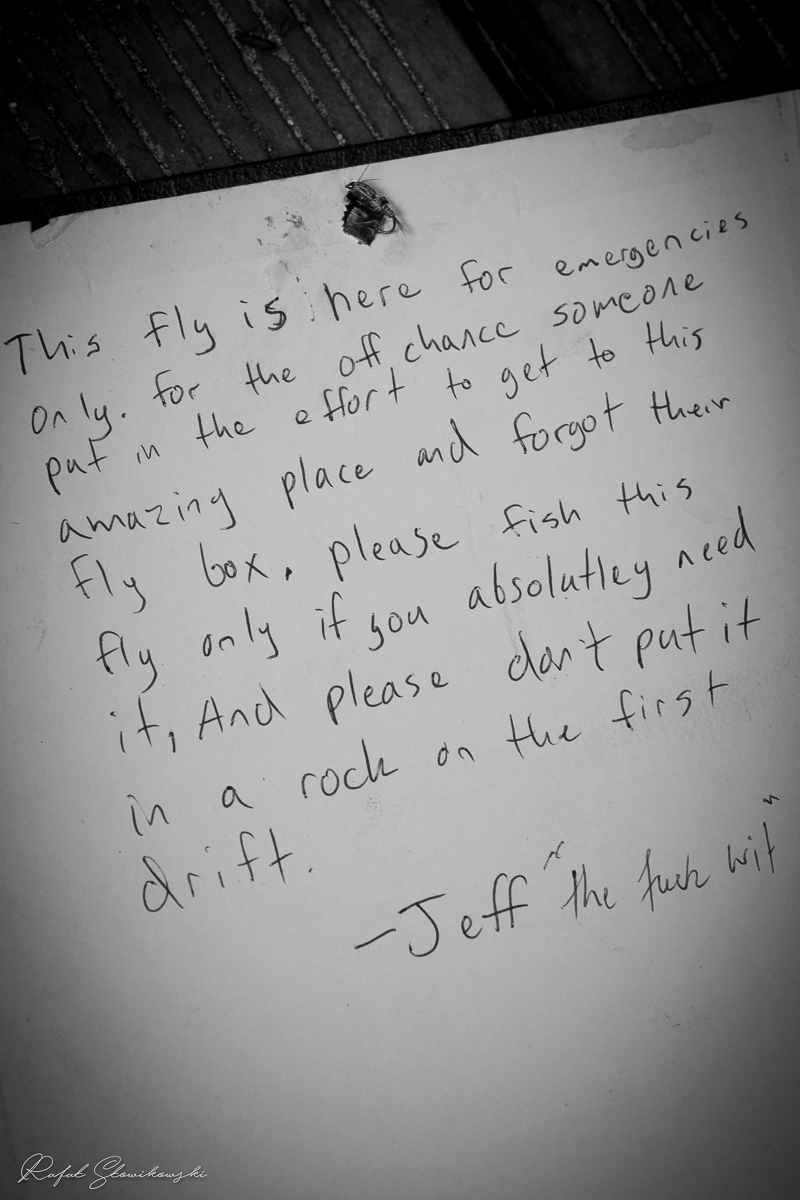 This fly is here for emergencies
only. for the off chance someone
put in the effort to get to this
amazing place and forgot their
fly box, please fish this
fly only if you absolutley need
it, And please don't put it
in a rock on the first
drift.
-Jeff "the fuck wit"
Rafał Słowikowski